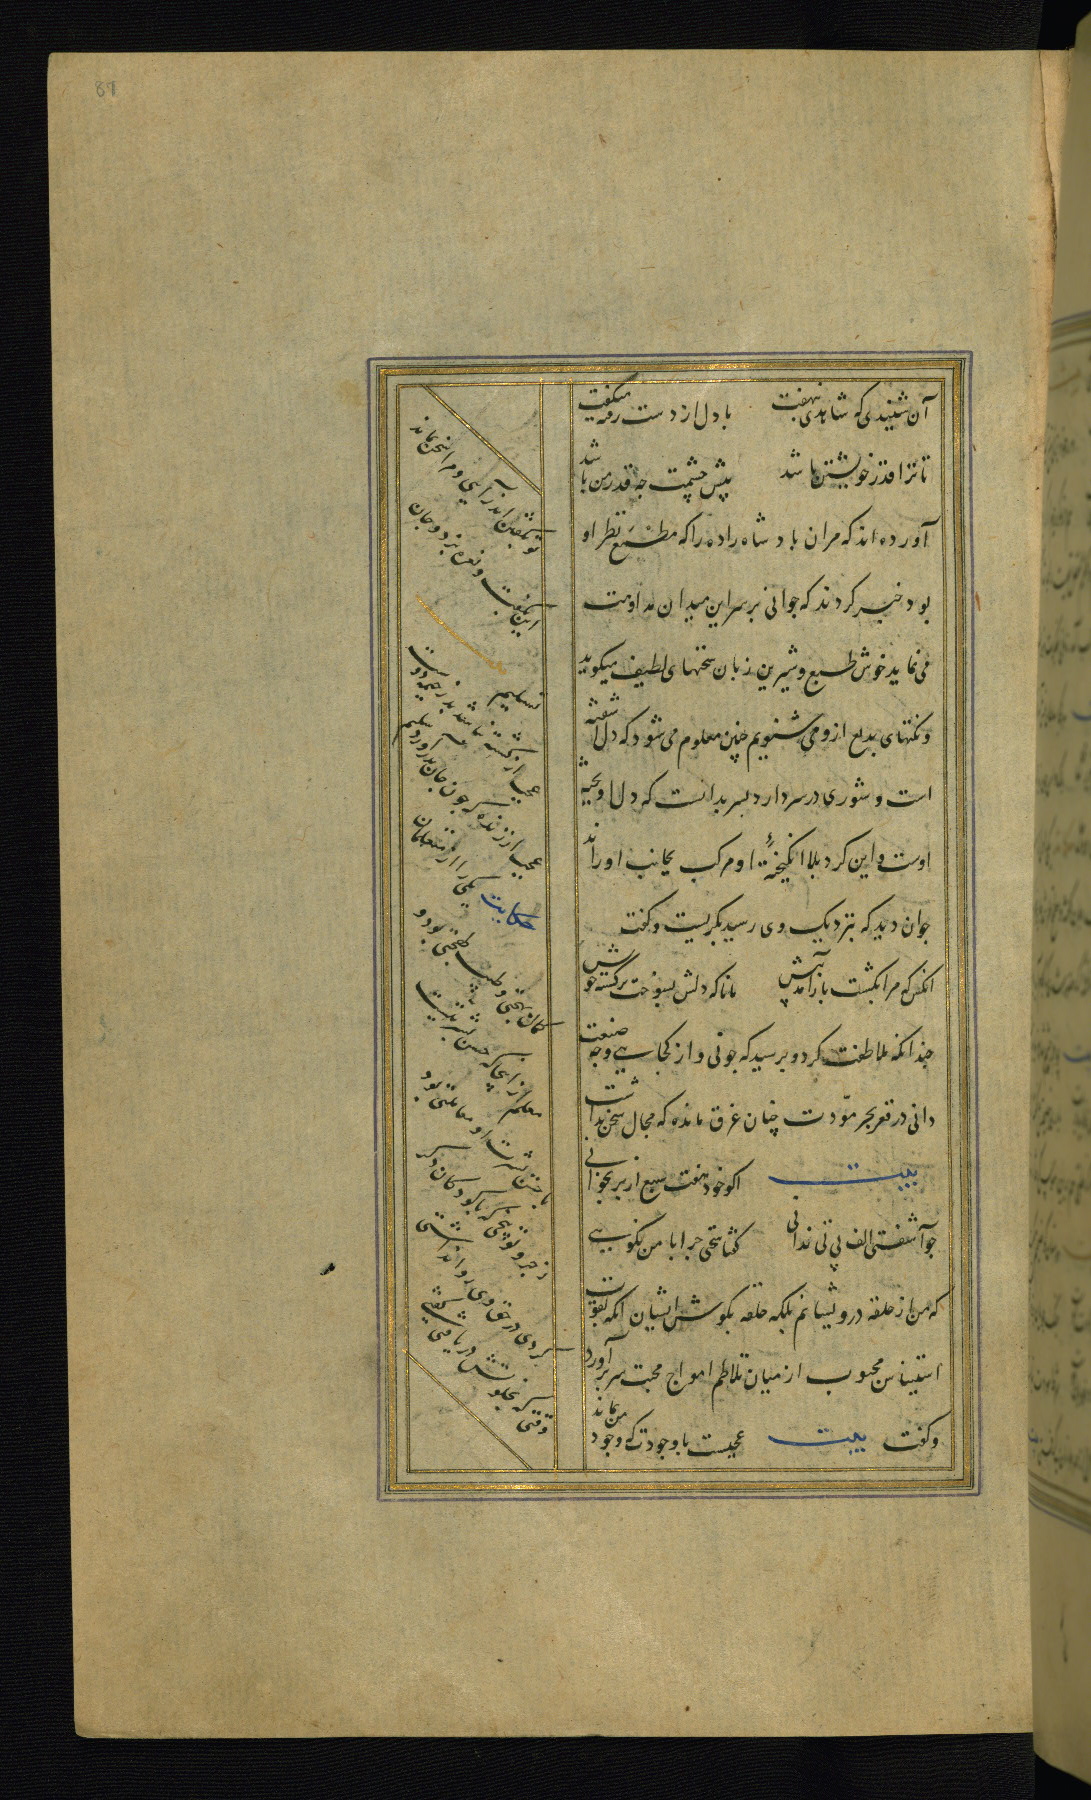 87
آن شنیدی که شاهدی بنهفت با دل از دست رفته میگفت
تا ترا قدر خویشتن باشد پیش چشمت چه قدر من باشد
آورده اند که مران بادشاه زاده را که مطمح نظر او
بود خبر کردند که جوانی بر سر این میدان مداومت
می نماید خوش طبع و شیرین زبان سخنهای لطیف میگوید
و نکتهای بدیع ازو می شنویم چنین معلوم می شود که دل آشفته
است و شوری در سر دارد پسر بدانست که دل آویخته
اوست و این گرد بلا انگیختهٔ او مرکب بجانب او راند
جوان دید که بنزدیک وی رسید بگریست و گفت
انکس که مرا بکشت باز آمد پیش مانا که دلش بسوخت بر کشته خویش
چندانکه ملاطفت کرد و پرسید که چونی و از کجایی و چه صنعت
دانی در قعر بحر مودت چنان غرق مانده که مجال سخن نداشت
بیت اگر خود هفت سبع از بر بخوانی
چو آشفتی الف بی تی ندانی گفتا سخن چرا با من نگویی
که من از حلقه درویشانم بلکه حلقه بگوش ایشان انگه بقوت
استیناس محبوب از میان تلاطم امواج محبت سر برآورد
و گفت بیت عجبست با وجودت که وجود من بماند
تو بگفتن اندر آیی و مرا سخن بماند
این بگفت و نعره بزد و جان
تسلیم
عجب از کشته نباشد بدر خیمه دوست
عجب از زنده که چون جان بدر آورد سلیم
حکایت یکی را از متعلمان
کمال بهجتی و طیب لهجتی بود و
معلم از انجا که حس بشریتست
با حسن بشرت او معاملتی بود
زجر و توبیخی که با کودکان دگر
کردی در حق وی روا نداشتی
وقتی که بخلوتش دریافتی گفتی